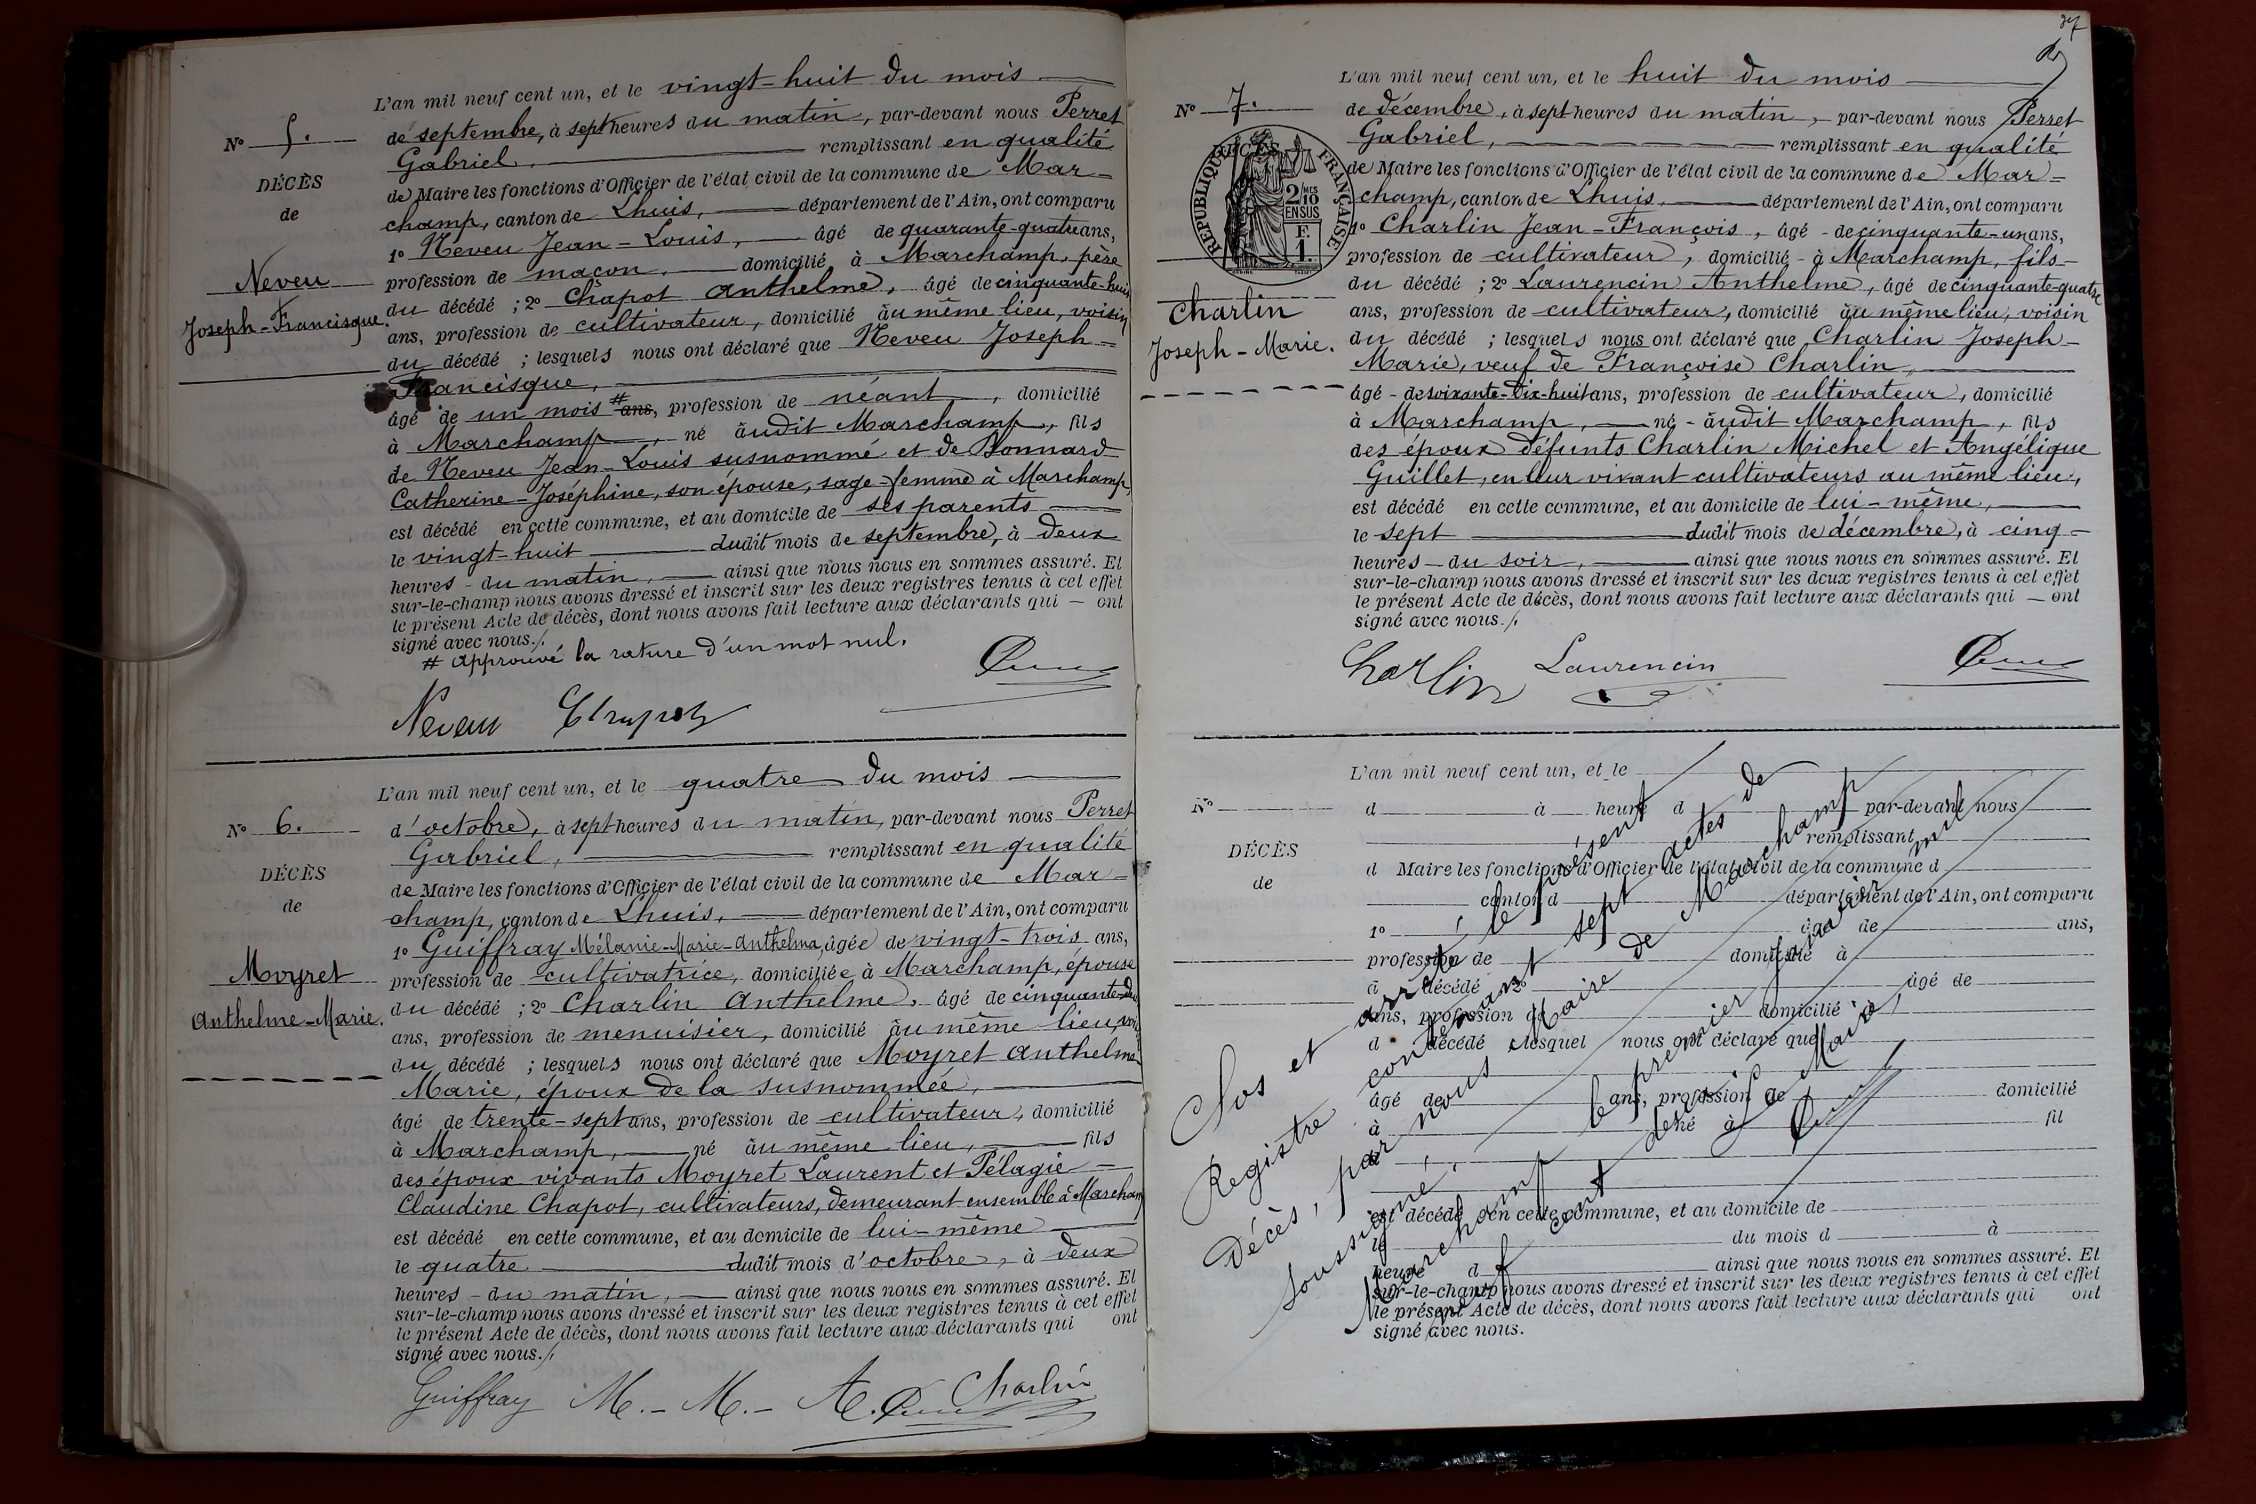 L'an mil neuf cent un, et le vingt-huit du mois
N° 5.
de septembre, à sept heures du matin, par-devant nous Perret
Gabriel, remplissant en qualité
DÉCÈS
de Maire les fonctions d'Officier de l'état civil de la commune de Mar-
de
champ, canton de Lhuis, département de l'Ain, ont comparu
1° Neveu Jean-Louis, âgé de quarante-quatre ans,
Neveu
profession de maçon, domicilié à Marchamp, père
Joseph-Francisque.
du décédé ; 2° Chapot Anthelme, âgé de cinquante-huit
ans, profession de cultivateur, domicilié au même lieu, voisin
du décédé ; lesquels nous ont déclaré que Neveu Joseph-
Francisque,
âgé de un mois # ans, profession de néant, domicilié
à Marchamp, né audit Marchamp, fils
de Neveu Jean-Louis susnommé et de Bonnard
Catherine-Joséphine, son épouse, sage-femme à Marchamp,
est décédé en cette commune, et au domicile de ses parents
le vingt-huit dudit mois de septembre, à deux
heures du matin, ainsi que nous nous en sommes assuré. Et
sur-le-champ nous avons dressé et inscrit sur les deux registres tenus à cet effet
le présent Acte de décès, dont nous avons fait lecture aux déclarants qui ont
signé avec nous./.
# Approuvé la rature d'un mot nul.
Neveu Chapot
L'an mil neuf cent un, et le quatre du mois
N° 6.
d'octobre, à sept heures du matin, par-devant nous Perret
Gabriel, remplissant en qualité
DÉCÈS
de Maire les fonctions d'Officier de l'état civil de la commune de Mar-
de
champ, canton de Lhuis, département de l'Ain, ont comparu
1° Guiffray Mélanie-Marie-Anthelma, âgée de vingt-trois ans,
Moyret
profession de cultivatrice, domiciliée à Marchamp, épouse
Anthelme-Marie.
du décédé ; 2° Charlin Anthelme, âgé de cinquante-deux
ans, profession de menuisier, domicilié au même lieu, voisin
du décédé ; lesquels nous ont déclaré que Moyret Anthelme
Marie, époux de la susnommée,
âgé de trente-sept ans, profession de cultivateur, domicilié
à Marchamp, né au même lieu, fils
des époux vivants Moyret Laurent et Pélagie
Claudine Chapot, cultivateurs, demeurant ensemble à Marchamp
est décédé en cette commune, et au domicile de lui-même
le quatre dudit mois d'octobre, à deux
heures du matin, ainsi que nous nous en sommes assuré. Et
sur-le-champ nous avons dressé et inscrit sur les deux registres tenus à cet effet
le présent Acte de décès, dont nous avons fait lecture aux déclarants qui ont
signé avec nous./.
Guiffray M.-M.-A. Charlin
37
L'an mil neuf cent un, et le huit du mois
N° 7.
de décembre, à sept heures du matin, par-devant nous Perret
Gabriel, remplissant en qualité
DÉCÈS
RÉPUBLIQUE FRANÇAISE
2/10 MES
EN SUS
F.
1.
de Maire les fonctions d'Officier de l'état civil de la commune de Mar-
champ, canton de Lhuis, département de l'Ain, ont comparu
1° Charlin Jean-François, âgé de cinquante-un ans,
profession de cultivateur, domicilié à Marchamp, fils
Charlin
du décédé ; 2° Laurencin Anthelme, âgé de cinquante-quatre
ans, profession de cultivateur, domicilié au même lieu, voisin
Joseph-Marie.
du décédé ; lesquels nous ont déclaré que Charlin Joseph-
Marie, veuf de Françoise Charlin,
âgé de soixante-dix-huit ans, profession de cultivateur, domicilié
à Marchamp, né audit Marchamp, fils
des époux défunts Charlin Michel et Angélique
Guillet, en leur vivant cultivateurs au même lieu,
est décédé en cette commune, et au domicile de lui-même,
le sept dudit mois de décembre, à cinq
heures du soir, ainsi que nous nous en sommes assuré. Et
sur-le-champ nous avons dressé et inscrit sur les deux registres tenus à cet effet
le présent Acte de décès, dont nous avons fait lecture aux déclarants qui ont
signé avec nous./.
Charlin Laurencin
L'an mil neuf cent un, et le
N°
d à heure d par-devant nous
remplissant
DÉCÈS
d Maire les fonctions d'Officier de l'état civil de la commune d
de
canton d département de l'Ain, ont comparu
1° âgé de ans,
profession de domicilié à
d décédé 2° âgé de
ans, profession de domicilié
d décédé lesquel nous ont déclaré que
âgé de ans, profession de domicilié
à né à fil
d
est décédé en cette commune, et au domicile de
le du mois d à
heure d ainsi que nous nous en sommes assuré. Et
sur-le-champ nous avons dressé et inscrit sur les deux registres tenus à cet effet
le présent Acte de décès, dont nous avons fait lecture aux déclarants qui ont
signé avec nous.
Clos et arrêté le présent
Registre contenant sept actes de
Décès, par nous Maire de Marchamp
soussigné,
Marchamp le premier janvier mil
neuf cent deux
Le Maire,